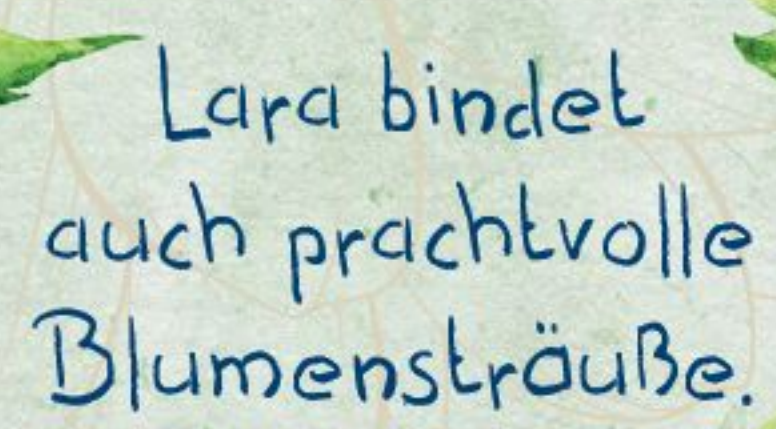 Lara bindet
auch prachtvolle
Blumensträuße.